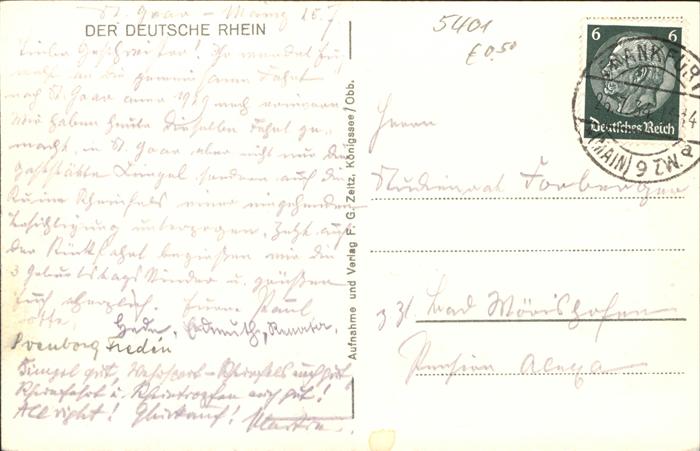 St. Goar – Mainz 15.7.
DER DEUTSCHE RHEIN
Liebe Geschwister! Ihr werdet Euch
wohl an die gemeinsame Fahrt
nach St. Goar anno 1929 noch erinnern.
Wir haben heute dieselbe Fahrt ge-
macht, in St. Goar aber nicht nur die
Gaststätte sondern auch die
Ruine Rheinfels einer eingehenden
Besichtigung unterzogen. Jetzt auf
der Rückfahrt begießen wir die
3 Geburtstags Kinder u. grüßen
Euch herzlich. Eure Paul
Lotte, Erdmuthe, Renate,
Svenborg Fredén
gut, Rheinfels auch gut,
Rheinfahrt u. Rheintropfen auch gut!
All right! Glückauf! Martin
Aufnahme und Verlag F. G. Zeitz, Königssee/Obb.
5401
€ 0,50
6 6
Deutsches Reich
FRANKFURT
(MAIN) 9
Herrn
Studienrat Forberger
z. Zt. Bad Wörishofen
Pension Alexa